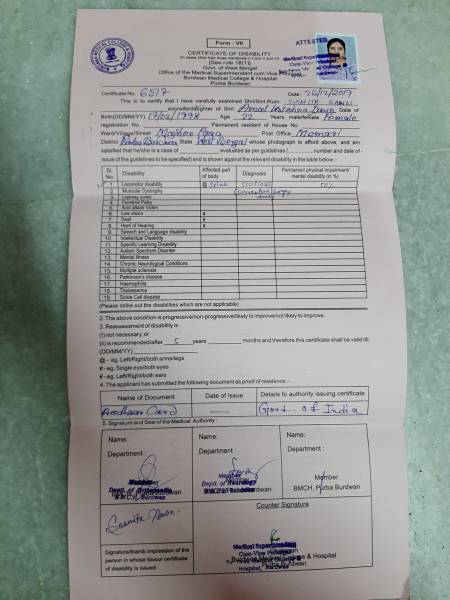 Form - VII
ATTESTED
CERTIFICATE OF DISABILITY
(In cases other than those mentioned in Form V and VI)
(See rule 18(1))
Govt. of West Bengal
Office of the Medical Superintendent cum Vice Principal
Burdwan Medical College & Hospital
Purba Burdwan
Certificate No. 6517 Date 26/12/2019
This is to certify that I have carefully examined Shri/Smt./Kum. SUSMITA DAWN
son/wife/daughter of Shri Date of
Birth(DD/MM/YY) 17/02/1998 Age 22 Years, male/female Female
registration No. Permanent resident of House No.
Ward/Village/Street Post Office Memari
District State West Bengal whose photograph is affixed above, and am
satisfied that he/she is a case of evaluated as per guidelines ( number and date of
issue of the guidelines to be specified) and is shown against the relevant disability in the table below :
Sl. No. Disability Affected part of body Diagnosis Permanent physical impairment/ mental disability (in %)
1. Locomotor disability @ Spine 50%
2. Muscular Dystrophy
3. Leprosy cured
4. Cerebral Palsy
5. Acid attack Victim
6. Low vision #
7. Deaf €
8. Hard of Hearing €
9. Speech and Language disability
10. Intellectual Disability
11. Specific Learning Disability
12. Autism Spectrum Disorder
13. Mental Illness
14. Chronic Neurological Conditions
15. Multiple sclerosis
16. Parkinson's disease
17. Haemophilia
18. Thalassemia
19. Sickle Cell disease
(Please strike out the disabilities which are not applicable)
2. The above condition is progressive/non-progressive/likely to improve/not likely to improve.
3. Reassessment of disability is :
(i) not necessary, or
(ii) is recommended/after 5 years months and therefore this certificate shall be valid till
(DD/MM/YY)
@ - eg. Left/Right/both arms/legs
# - eg. Single eye/both eyes
€ - eg. Left/Right/both ears
4. The applicant has submitted the following document as proof of residence :-
Name of Document Date of Issue Details fo authority issuing certificate
Aadhaar Card — Govt. of India
5. Signature and Seal of the Medical Authority :
Name: Name: Name:
Department : Department : Department :
Member Member Member
Dept. of Dept. of BMCH, Purba Burdwan
Counter Signature
Susmita Dawn.
Burdwan Medical College & Hospital
Signature/thumb impression of the
person in whose favour certificate
of disability is issued